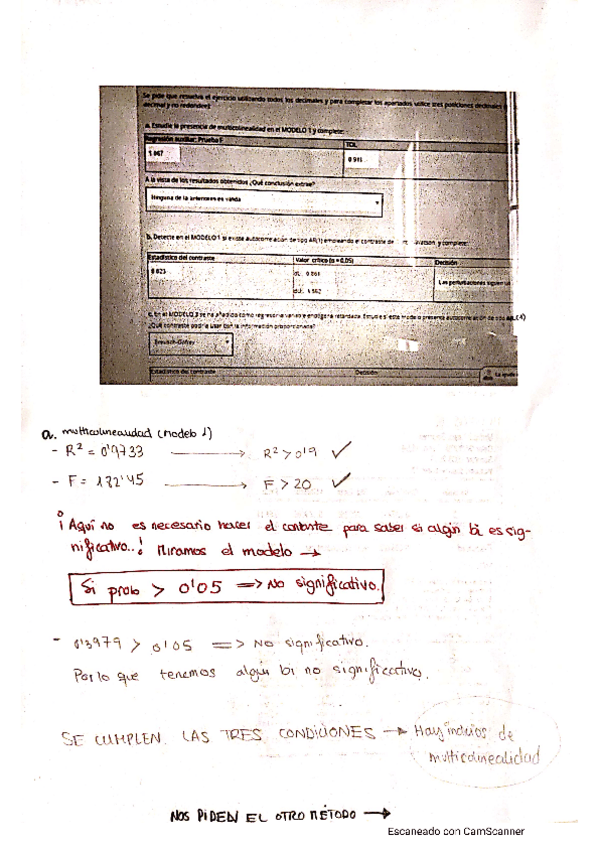 Se pide que resuelva el ejercicio utilizando todos los decimales y para completar los apartados utilice tres posiciones decimales
decimal y no redondee)
a. Estudie la presencia de multicolinealidad en el MODELO 1 y complete:
Regresión auxiliar. Prueba F
TOL
0.916
A la vista de los resultados obtenidos ¿Qué conclusión extrae?
Ninguna de la anteriores es válida
b. Detecte en el MODELO 1 si existe autocorrelación de tipo AR(1) empleando el contraste de y complete:
Estadístico del contraste
Valor crítico (α = 0,05)
Decisión
0.623
dL: 0.861
dU: 1.562
Las perturbaciones siguen un
c. En el MODELO 3 se ha añadido como regresor la variable endógena retardada. Estudie si este modelo presenta autocorrelación de tipo AR(4)
¿Qué contraste podría usar con la información proporcionada?
Breusch-Gofrey
Estadístico del contraste
Decisión
a. multicolinealidad (Modelo 1)
- R² = 0'9733 → R² > 0'9 ✓
- F = 132'45 → F > 20 ✓
¡Aquí no es necesario hacer el contraste para saber si algún bi es sig-
nificativo..! Miramos el modelo →
Si prob > 0'05 => No significativo.
- 0'3979 > 0'05 => No significativo.
Por lo que tenemos algún bi no significativo.
SE CUMPLEN LAS TRES CONDICIONES → Hay indicios de
multicolinealidad
NOS PIDEN EL OTRO MÉTODO →
Escaneado con CamScanner